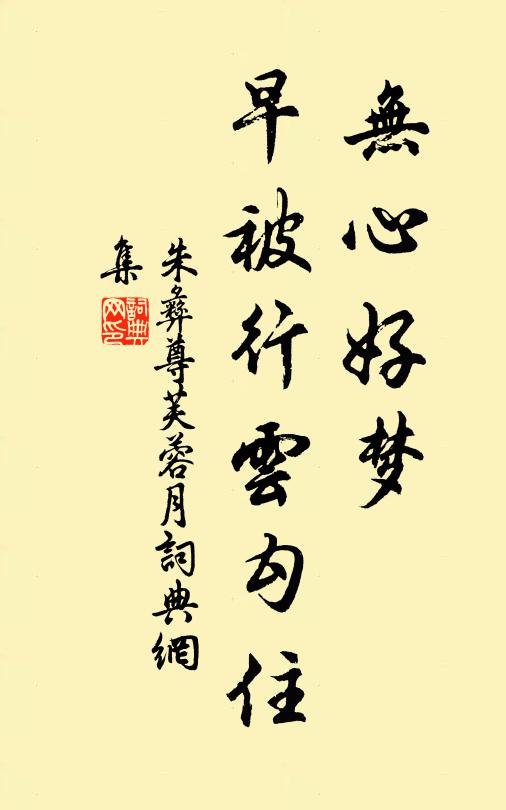 無心好梦
早被行雲勾住
朱彝尊芙蓉月詞典網
集
詞典
网印